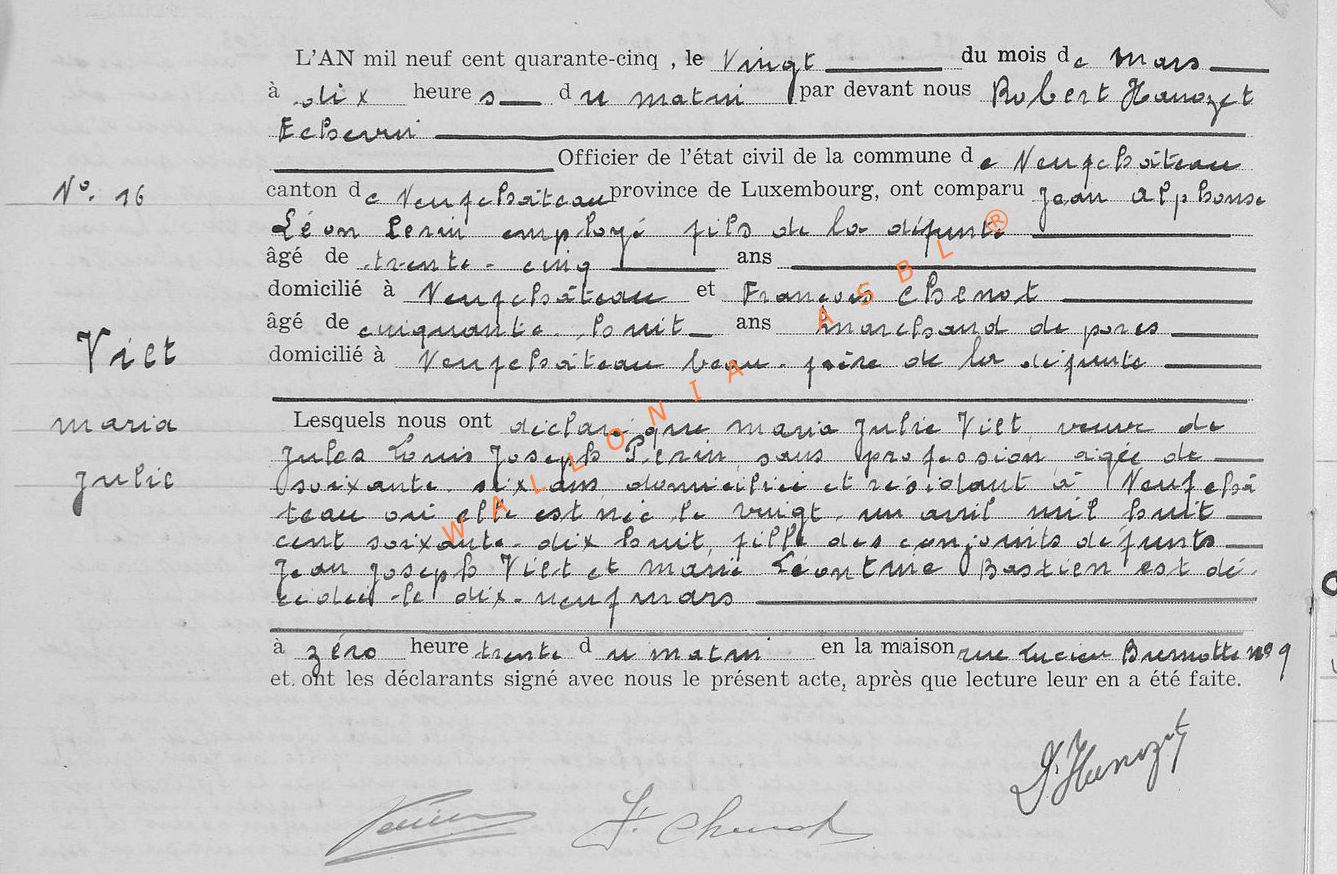 L'AN mil neuf cent quarante-cinq , le Vingt du mois de mars
à dix heures du matin par devant nous Robert Hanozet
Echevin
Officier de l'état civil de la commune de Neufchâteau
N°. 16
canton de Neufchâteau province de Luxembourg, ont comparu Jean Alphonse
Léon Perin employé fils de la défunte
âgé de trente-cinq ans
domicilié à Neufchâteau et François Chenot
âgé de cinquante-huit ans marchand de porcs
domicilié à Neufchâteau beau-frère de la défunte
Viet
maria
Julie
Lesquels nous ont déclaré que Maria Julie Viet, veuve de
Jules Louis Joseph Perin, sans profession, agée de
soixante-six ans, domiciliée et résidant à Neufchâ
teau où elle est née le vingt-un avril mil huit
cent soixante-dix huit, fille des conjoints défunts
Jean Joseph Viet et Marie Léontine Bastien est dé-
cédée le dix-neuf mars
à zéro heure trente du matin en la maison rue Lucien Burnotte n° 9
et ont les déclarants signé avec nous le présent acte, après que lecture leur en a été faite.
R. Hanozet
Perin
F. Chenot
WALLONIA ASBL ®